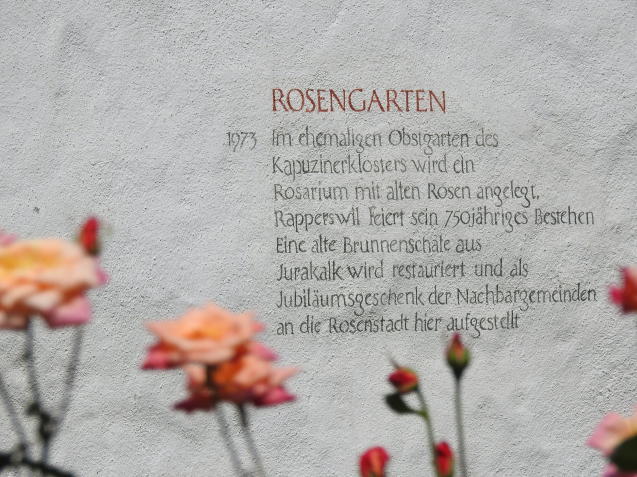 ROSENGARTEN
1973 Im ehemaligen Obstgarten des
Kapuzinerklosters wird ein
Rosarium mit alten Rosen angelegt.
Rapperswil feiert sein 750jähriges Bestehen
Eine alte Brunnenschale aus
Jurakalk wird restauriert und als
Jubiläumsgeschenk der Nachbargemeinden
an die Rosenstadt hier aufgestellt